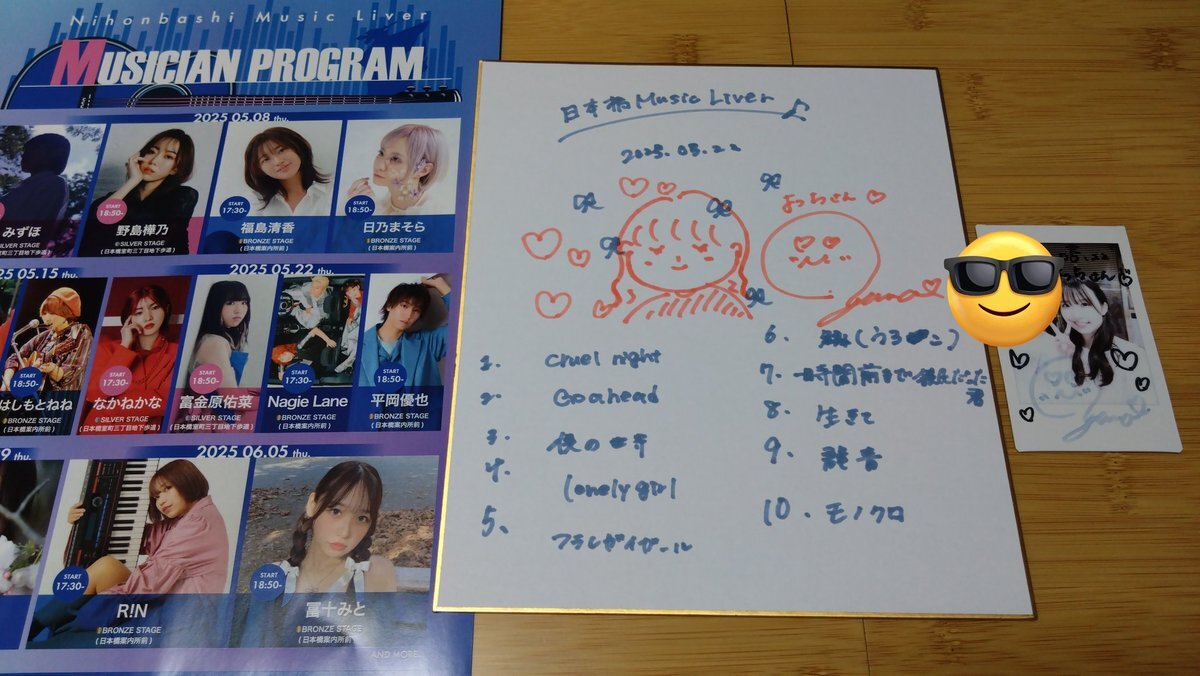 Nihonbashi Music Liver
MUSICIAN PROGRAM
2025.05.08 thu.
みずほ
START
18:50-
野島樺乃
SILVER STAGE
(日本橋室町三丁目地下歩道)
START
17:30-
福島清香
BRONZE STAGE
(日本橋案内所前)
START
18:50-
日乃まそら
BRONZE STAGE
(日本橋案内所前)
05.15 thu.
START
18:50-
はしもとねね
BRONZE STAGE
(日本橋案内所前)
2025.05.22 thu.
START
17:30-
なかねかな
SILVER STAGE
(日本橋室町三丁目地下歩道)
START
18:50-
富金原佑菜
SILVER STAGE
(日本橋室町三丁目地下歩道)
START
17:30-
Nagie Lane
BRONZE STAGE
(日本橋案内所前)
START
18:50-
平岡優也
BRONZE STAGE
(日本橋案内所前)
9 thu.
2025.06.05 thu.
START
17:30-
R!N
BRONZE STAGE
(日本橋案内所前)
START
18:50-
冨十みと
BRONZE STAGE
(日本橋案内所前)
AND MORE...
日本橋 Music Liver ♪
2025.05.22
よっちさん
1. cruel night
2. Go ahead
3. 夜の
4. lonely girl
5.
6. (うろこ)
7. 一時間前まで彼氏だった君
8. 生きて
9. 雑音
10. モノクロ
5.22
さん